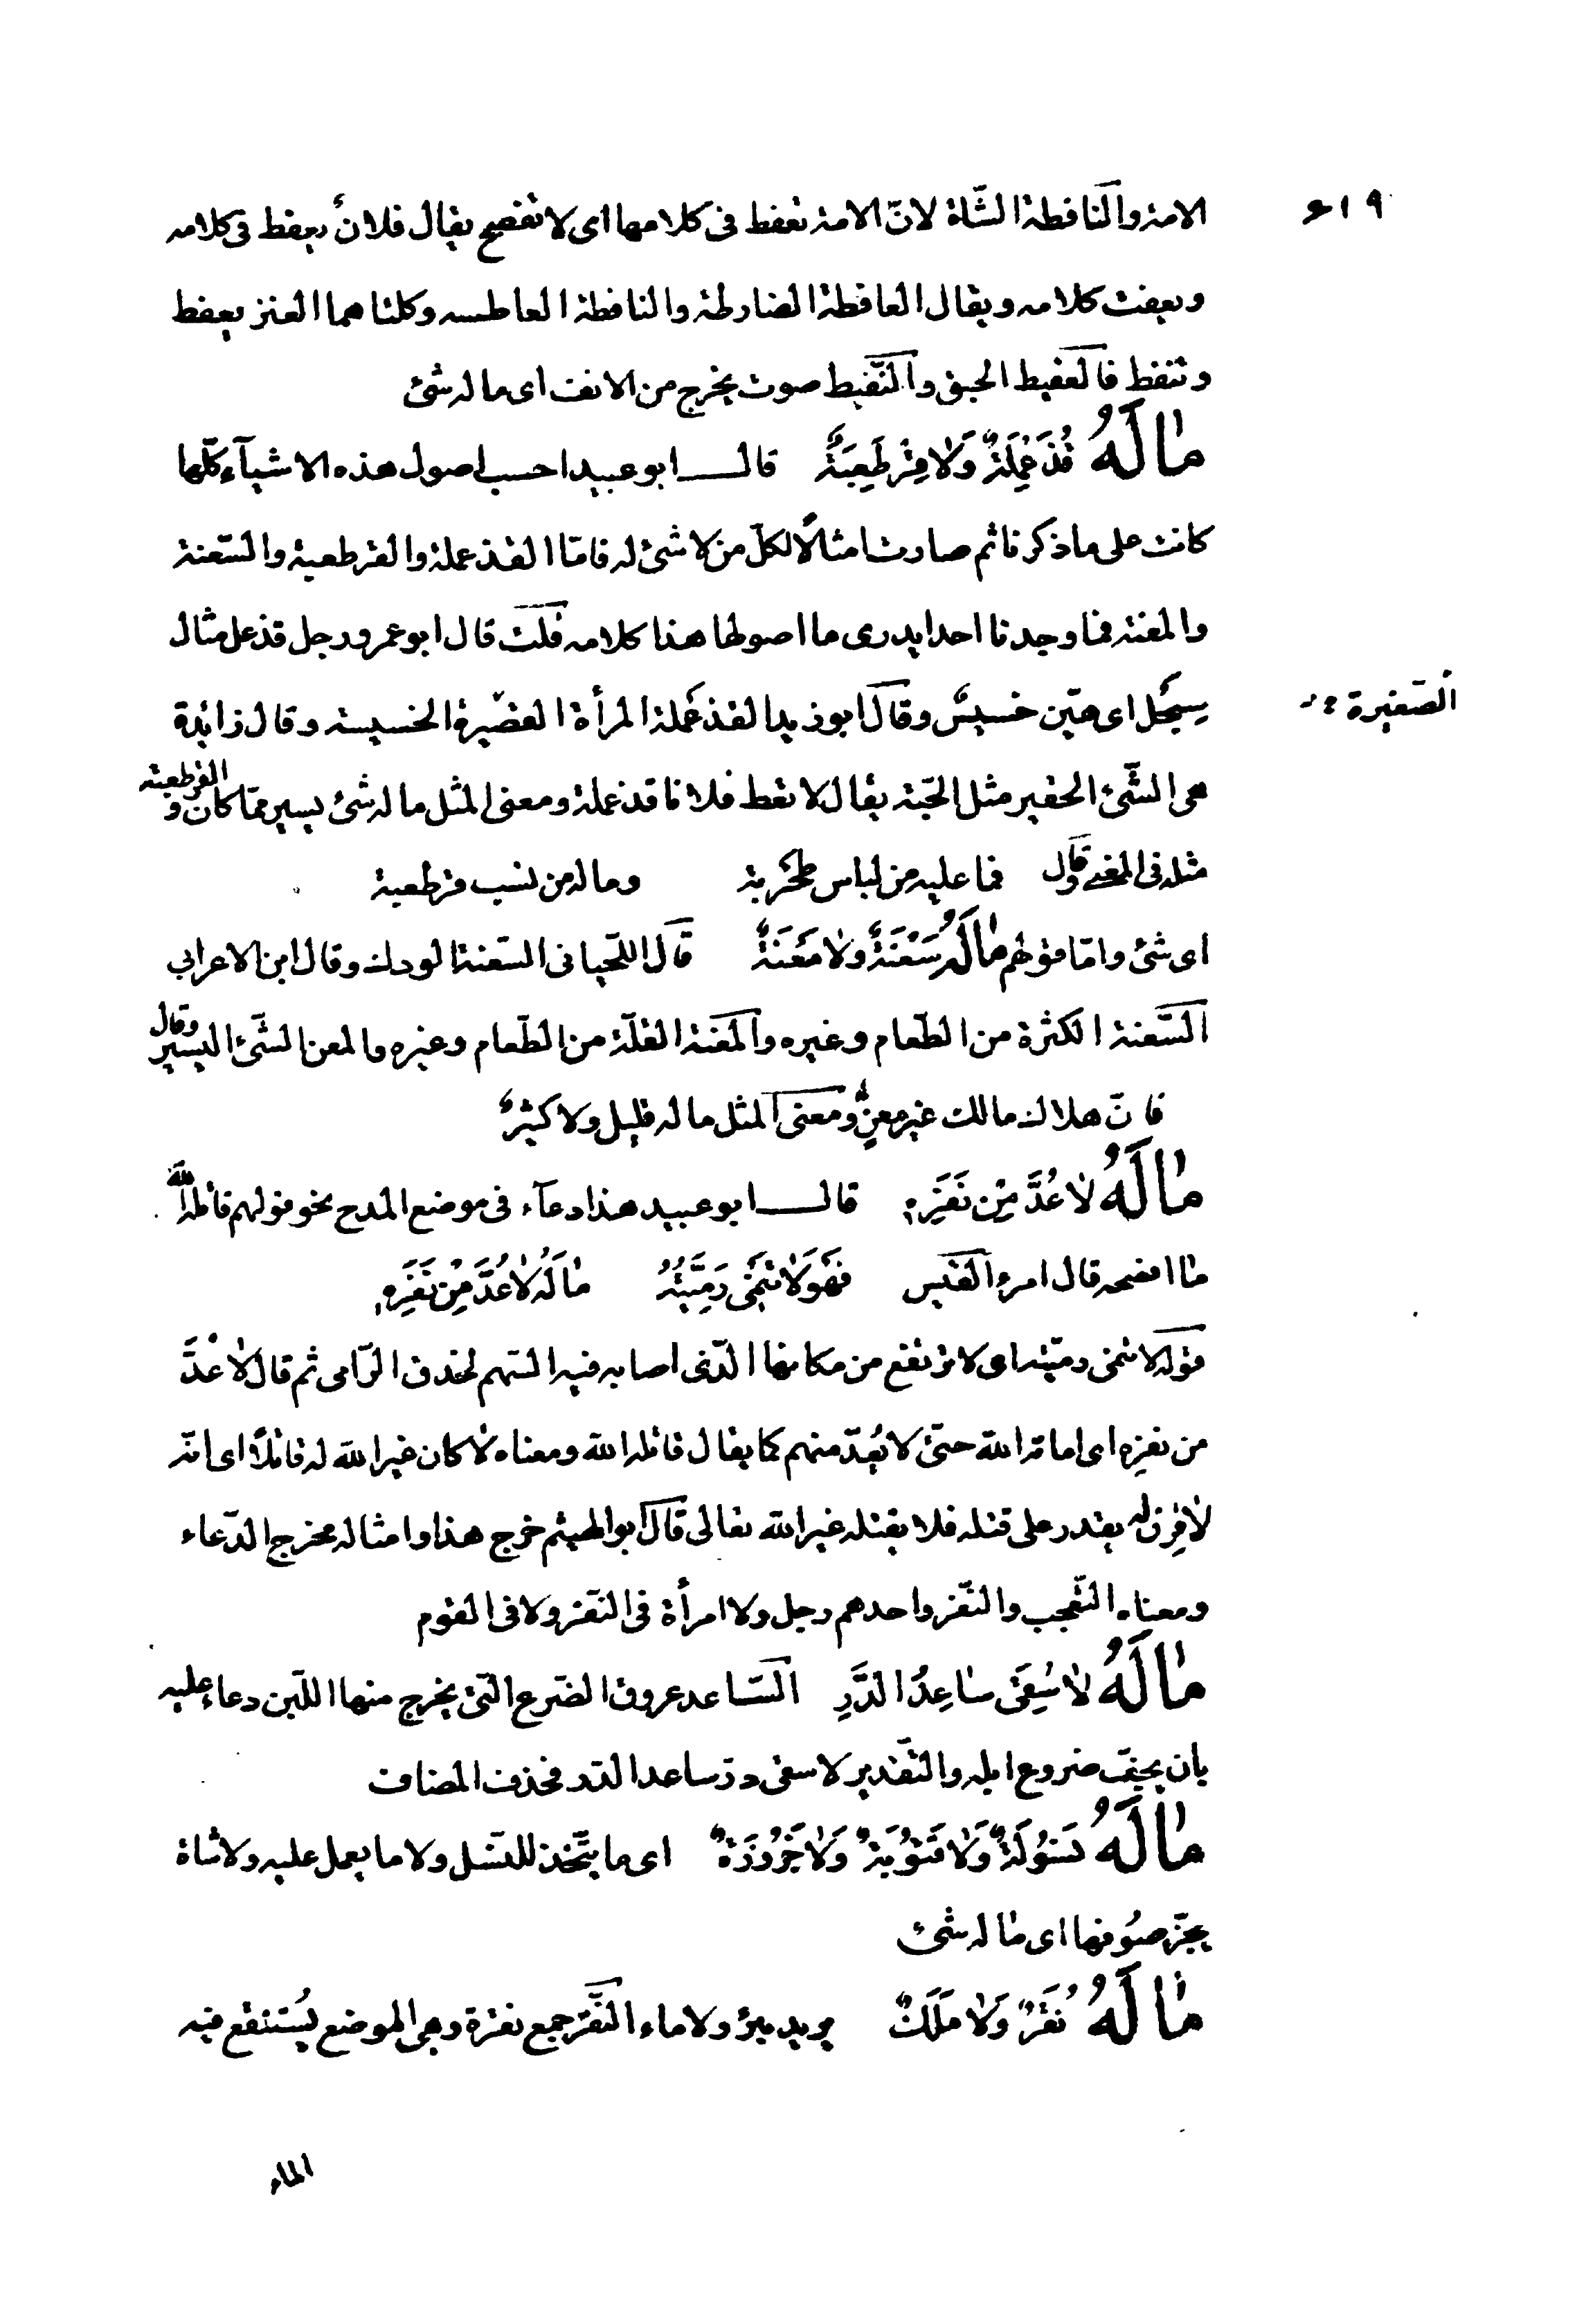 ٤١٩
الامة والنافطة الشّاة لانّ الامة تعفط فى كلامها اى لا تفصح يقال فلانٌ يعفط فى كلامه
ويعفت كلامه ويقال العافطة الضارطة والنافطة العاطسه وكلتاهما العنز تعفط
وتنفط فالعفيط الحبق والنّفيط صوت يخرج من الانف اى ما له شئ
مَا لَهُ قُذَعْمِلَةٌ وَلَا قِرْطَعِبَةٌ قال ابو عبيد احسب اصول هذه الاشيآء كلّها
كانت على ما ذكرنا ثم صارت امثالًا لكلّ من لا شئ له فامّا القذعملة والقرطعبة والسّعنة
والمعنة فما وجدنا احدا يدرى ما اصولها هذا كلامه قلت قال ابو عمرو رجل قذعل مثال
سِبَحْل اى هيّن خسيسٌ وقال ابو زيد القذعملة المرأة القصيرة الخسيسة وقال زائدة
الصّغيرة
هى الشّئ الحقير مثل الحبّة يقال لا تعط فلانا قذعملة ومعنى المثل ما له شئ يسير ممّا كان و القرطعبة
مثله فى المعنى وقال فما عليه من لباس طحربة وما له من نسب قرطعبة
اى شئ وامّا قولهم مَا لَهُ سَعْنَةٌ ولا مَعْنَةٌ قال اللّحيانى السّعنة الودك وقال ابن الاعرابى
السّعنة الكثرة من الطّعام وغيره والمعنة القلّة من الطّعام وغيره والمعن الشّئ اليسير وقال
فانّ هلاك مالك غير معنٍ ومعنى المثل ما له قليل ولا كثيرٌ
مَا لَهُ لَا عُدَّ مِنْ نَفَرِهِ قال ابو عبيد هذا دعآء فى موضع المدح نحو قولهم قاتله اللّه
ما افصحه قال امرء القيس فَهْوَ لَا تَنْمِى رَمِيَّتُهُ مَا لَهُ لَا عُدَّ مِنْ نَفَرِهِ
قوله لا تنمى رميّته اى لا ترتفع من مكانها الّذى اصابه فيه السّهم لحذق الرّامى ثم قال لا عُدَّ
من نفره اى اماته اللّه حتّى لا يُعدّ منهم كما يقال قاتله اللّه ومعناه لا كان غير اللّه له قاتلًا اى انّه
لا قِرن له يقدر على قتله فلا يقتله غير اللّه تعالى قال ابو الهيثم خرج هذا وامثاله مخرج الدّعاء
ومعناه التّعجب والنّفر واحدهم رجل ولا امرأة فى النّفر ولا فى القوم
مَا لَهُ لَا سُقِىَ سَاعِدُ الدَّرِ السّاعد عروق الضّرع الّتى يخرج منها اللّبن دعاء عليه
بان يجفّ ضروع ابله والتّقدير لا سقى درّ ساعد الدّر فحذف المضاف
مَا لَهُ نَسُولَةٌ وَلَا قَتُوبَةٌ وَلَا جَزُوزَةٌ اى ما يتّخذ للنّسل ولا ما يعمل عليه ولا شاة
يجزّ صُوفها اى ما له شئ
مَا لَهُ نُقَرٌ وَلَا مَلَكٌ يريد بئرًا ولا ماء النّقر جمع نقرة وهى الموضع يُستنقع فيه
الماء